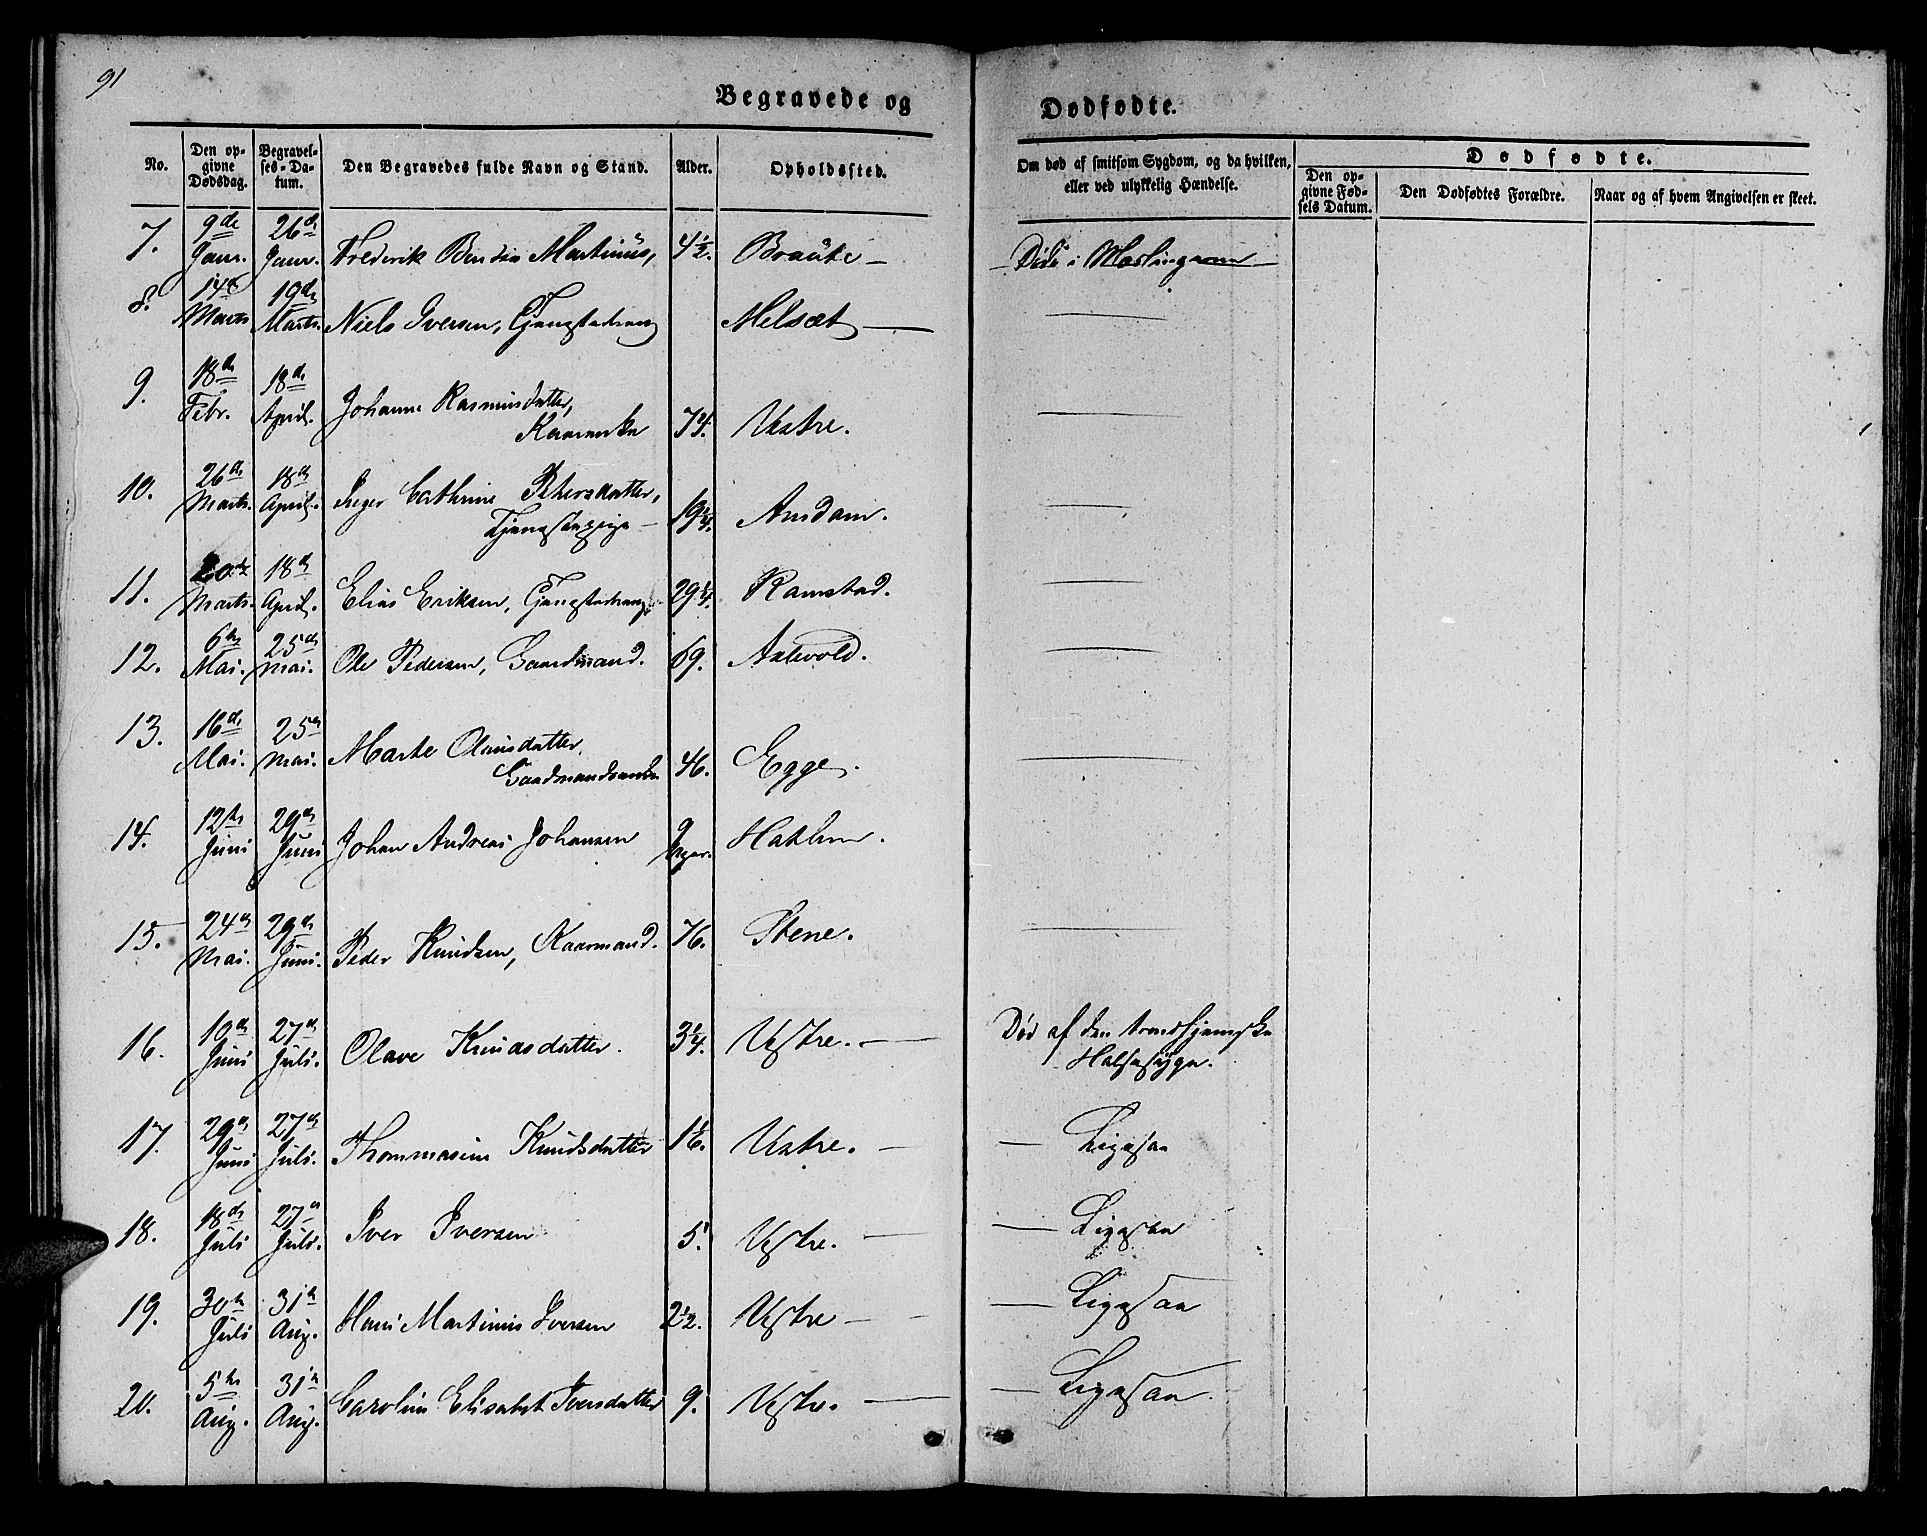 91
Begravede og
Dødfødte.
No.
Den op-
givne
Dødsdag.
Begravel-
ses-Da-
tum.
Den Begravedes fulde Navn og Stand.
Alder.
Opholdssted.
Om død af smitsom Sygdom, og da hvilken,
eller ved ulykkelig Hændelse.
Dødfødte.
Den op-
givne Fød-
sels Datum.
Den Dødfødtes Forældre.
Naar og af hvem Angivelsen er skeet.
7. 9de Janr. 26de Janr. Frederik Martinus, 4½. Braute — Døde i Mæslingerne
8. 14de Marts 19de Marts. Niels Iversen, Melsæt —
9. 18de Febr. 18de April. Johanne Rasmusdatter,
Kaarenske 74. Vestre.
10. 26de Marts. 18de April. Inger Cathrine Petersdatter,
Tjenestepige — 19¼. Amdam.
11. 20de Marts. 18de April. Elias Eriksen, 29¼. Ramstad.
12. 6te Mai. 25de Mai. Ole Pedersen, Gaardmand. 69. Aalevold.
13. 16de Mai. 25de Mai. Marte Olausdatter,
46. Egge.
14. 12te Juni 29de Juni Johan Andreas Johansen 9 Uger. Hatlem.
15. 24de Mai. 29de Juni. Peder Knudsen, Kaarmand. 76. Stene.
16. 10de Juni 27de Juli. Olave Knudsdatter. 3¼. Vestre. — Død af den trondhjemske
Halsesyge.
17. 29de Juni 27de Juli. Thommasine Knudsdatter 1⅙. Vestre. — — Ligesaa
18. 18de Juli 27de Juli. Iver Iversen 5. Vestre. — — Ligesaa
19. 30te Juli 31te Aug. Hans Martinus Iversen 2½. Vestre — — Ligesaa
20. 5te Aug. 31te Aug. Caroline Elisabet Iversdatter 9. Vestre. — — Ligesaa.